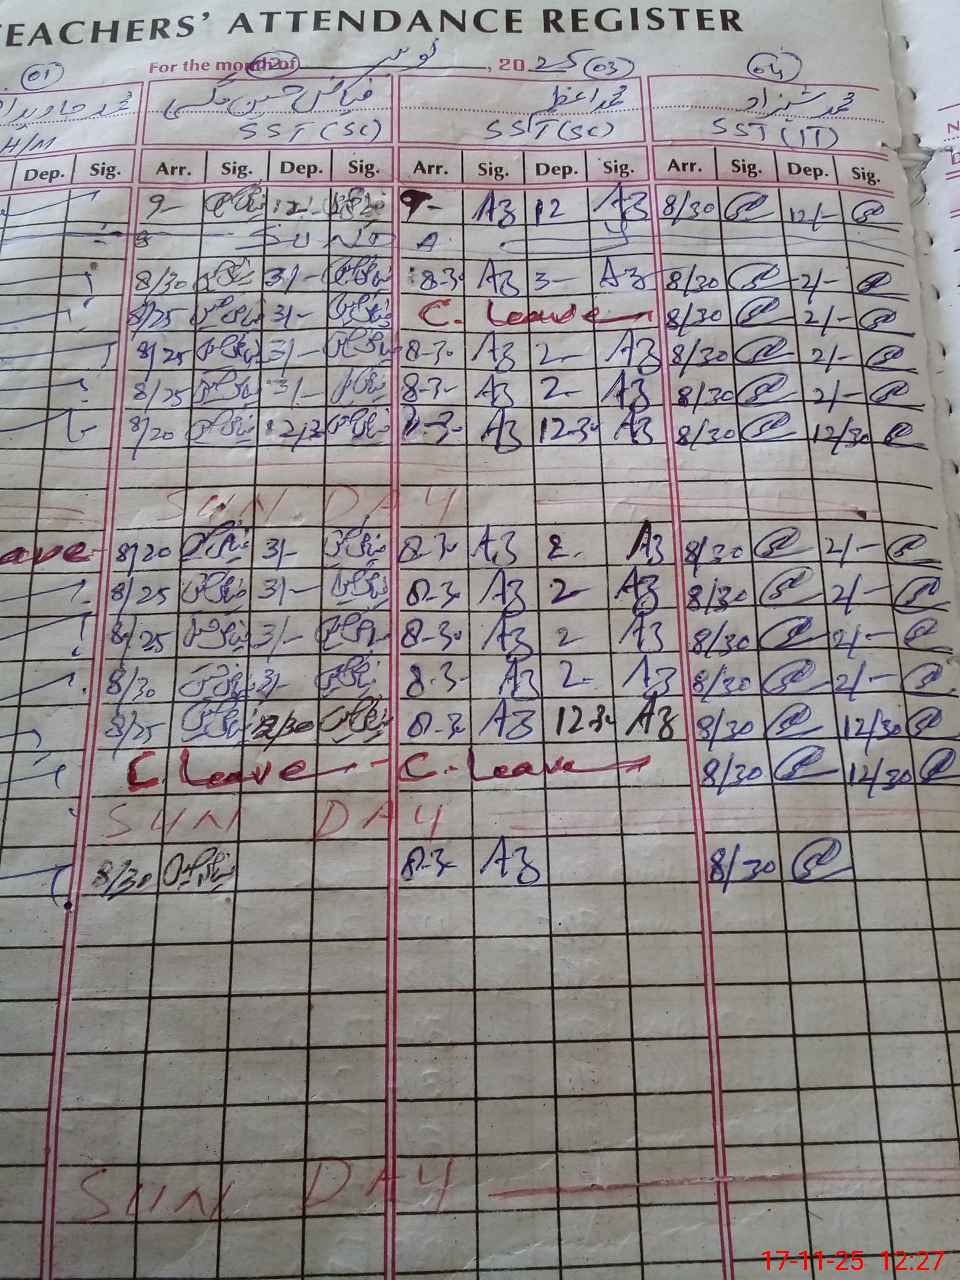 TEACHERS' ATTENDANCE REGISTER
For the month of نومبر, 2025
01 02 03 04
محمد جاوید فیاض حسین محمد اعظم محمد شہزاد
H/M SST(SC) SST(SC) SST(IT)
Dep. Sig. Arr. Sig. Dep. Sig. Arr. Sig. Dep. Sig. Arr. Sig. Dep. Sig.
9- 12/- 9- Az 12 Az 8/30 12/-
SUNDAY
8/30 3/- 8-30 Az 3- Az 8/30 2/-
8/25 3/- C. Leave 8/30 2/-
8/25 3/- 8-30 Az 2- Az 8/30 2/-
8/25 3/- 8-3- Az 2- Az 8/30 2/-
8/20 12/30 8-3- Az 12-30 Az 8/30 12/30
SUN DAY
ave 8/20 3/- 8-30 Az 2. Az 8/30 2/-
8/25 3/- 8-30 Az 2- Az 8/30 2/-
8/25 3/- 8-30 Az 2 Az 8/30 2/-
8/30 3/- 8-3- Az 2- Az 8/30 2/-
8/25 12/30 8-30 Az 12-30 Az 8/30 12/30
C. Leave C. Leave 8/30 12/30
SUN DAY
8/30 8-30 Az 8/30
SUN DAY
17-11-25 12:27